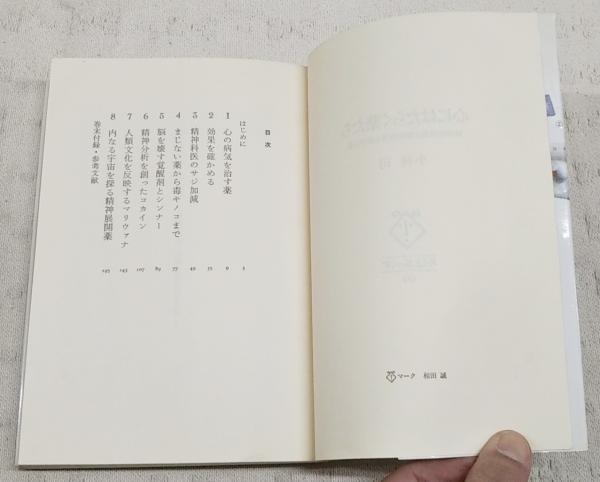 目次
はじめに 3
1 心の病気を治す薬 9
2 効果を確かめる 21
3 精神科医のサジ加減 42
4 まじない薬から毒キノコまで 77
5 脳を壊す覚醒剤とシンナー 89
6 精神分析を創ったコカイン 107
7 人類文化を反映するマリワァナ 143
8 内なる宇宙を探る精神展開薬 195
巻末付録・参考文献
マーク 和田 誠